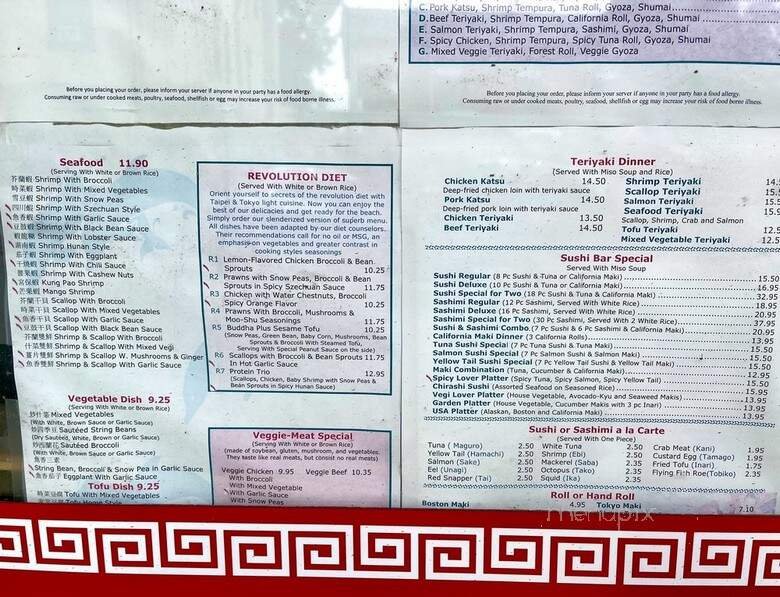 C. Pork Katsu, Shrimp Tempura, Tuna Roll, Gyoza, Shumai
D. Beef Teriyaki, Shrimp Tempura, California Roll, Gyoza, Shumai
E. Salmon Teriyaki, Shrimp Tempura, Sashimi, Gyoza, Shumai
F. Spicy Chicken, Shrimp Tempura, Spicy Tuna Roll, Gyoza, Shumai
G. Mixed Veggie Teriyaki, Forest Roll, Veggie Gyoza
Before you placing your order, please inform your server if anyone in your party has a food allergy.
Consuming raw or under cooked meats, poultry, seafood, shellfish or egg may increase your risk of food borne illness.
Before you placing your order, please inform your server if anyone in your party has a food allergy.
Consuming raw or under cooked meats, poultry, seafood, shellfish or egg may increase your risk of food borne illness.
Seafood 11.90
(Serving With White or Brown Rice)
芥蘭蝦 Shrimp With Broccoli
時菜蝦 Shrimp With Mixed Vegetables
雪豆蝦 Shrimp With Snow Peas
四川蝦 Shrimp With Szechuan Style
魚香蝦 Shrimp With Garlic Sauce
豆豉蝦 Shrimp With Black Bean Sauce
蝦龍糊 Shrimp With Lobster Sauce
湖南蝦 Shrimp Hunan Style
茄子蝦 Shrimp With Eggplant
干燒蝦 Shrimp With Chili Sauce
腰果蝦 Shrimp With Cashew Nuts
宮保蝦 Kung Pao Shrimp
芒果蝦 Mango Shrimp
芥蘭干貝 Scallop With Broccoli
時菜干貝 Scallop With Mixed Vegetables
魚香干貝 Scallop With Garlic Sauce
豆豉干貝 Scallop With Black Bean Sauce
芥蘭雙鮮 Shrimp & Scallop With Broccoli
什菜雙鮮 Shrimp & Scallop With Mixed Vegi
薑片雙鮮 Shrimp & Scallop W. Mushrooms & Ginger
魚香雙鮮 Shrimp & Scallop With Garlic Sauce
Vegetable Dish 9.25
(Serving With White or Brown Rice)
炒什菜 Mixed Vegetables
(With White, Brown Sauce or Garlic Sauce)
炒四季豆 Sautéed String Beans
(Dry Sautéed, White, Brown or Garlic Sauce)
炒西蘭花 Sautéed Broccoli
(With White, Brown Sauce or Garlic Sauce)
魚香三素
String Bean, Broccoli & Snow Pea in Garlic Sauce
魚香茄子 Eggplant With Garlic Sauce
Tofu Dish 9.25
(Serving With White or Brown Rice)
時菜豆腐 Tofu With Mixed Vegetables
Tofu Home Style
REVOLUTION DIET
(Served With White or Brown Rice)
Orient yourself to secrets of the revolution diet with
Taipei & Tokyo light cuisine. Now you can enjoy the
best of our delicacies and get ready for the beach.
Simply order our slenderized version of superb menu.
All dishes have been adapted by our diet counselors.
Their recommendations call for no oil or MSG, an
emphasis on vegetables and greater contrast in
cooking styles seasonings
R1 Lemon-Flavored Chicken Broccoli & Bean
Sprouts 10.25
R2 Prawns with Snow Peas, Broccoli & Bean
Sprouts in Spicy Szechuan Sauce 11.75
R3 Chicken with Water Chestnuts, Broccoli
Spicy Orange Flavor 10.25
R4 Prawns With Broccoli, Mushrooms &
Moo-Shu Seasonings 11.75
R5 Buddha Plus Sesame Tofu 10.25
(Snow Peas, Green Bean, Baby Corn, Mushrooms, Bean
Sprouts & Broccoli With Steamed Tofu,
Serving With Special Peanut Sauce on the side)
R6 Scallops with Broccoli & Bean Sprouts 11.75
In Hot Garlic Sauce
R7 Protein Trio 12.95
(Scallops, Chicken, Baby Shrimp with Snow Peas &
Bean Sprouts in Spicy Hunan Sauce)
Veggie-Meat Special
(Serving With White or Brown Rice)
(made of soybean, gluten, mushroom, and vegetables.
They taste like real meats, but consist no real meats)
Veggie Chicken 9.95 Veggie Beef 10.35
With Broccoli
With Mixed Vegetable
With Garlic Sauce
With Snow Peas
Teriyaki Dinner
(Served With Miso Soup and Rice)
Chicken Katsu 14.50 Shrimp Teriyaki
Deep-fried chicken loin with teriyaki sauce Scallop Teriyaki
Pork Katsu 14.50 Salmon Teriyaki
Deep-fried pork loin with teriyaki sauce Seafood Teriyaki
Scallop, Shrimp, Crab and Salmon
Chicken Teriyaki 13.50 Tofu Teriyaki
Beef Teriyaki 14.50 Mixed Vegetable Teriyaki
Sushi Bar Special
Served With Miso Soup
Sushi Regular (8 Pc Sushi & Tuna or California Maki) 15.50
Sushi Deluxe (10 Pc Sushi & Tuna or California Maki) 16.95
Sushi Special for Two (18 Pc Sushi & Tuna & California Maki) 32.95
Sashimi Regular (12 Pc Sashimi, Served With White Rice) 18.95
Sashimi Deluxe (16 Pc Sashimi, Served With White Rice) 20.95
Sashimi Special for Two (30 Pc Sashimi, Served With 2 White Rice) 37.95
Sushi & Sashimi Combo (7 Pc Sushi & 6 Pc Sashimi & California Maki) 20.95
California Maki Dinner (3 California Rolls) 13.95
Tuna Sushi Special (7 Pc Tuna Sushi & Tuna Maki) 15.50
Salmon Sushi Special (7 Pc Salmon Sushi & Salmon Maki) 15.50
Yellow Tail Sushi Special (7 Pc Yellow Tail Sushi & Yellow Tail Maki) 15.50
Maki Combination (Tuna, Cucumber & California Maki) 12.95
Spicy Lover Platter (Spicy Tuna, Spicy Salmon, Spicy Yellow Tail) 15.50
Chirashi Sushi (Assorted Seafood on Seasoned Rice) 15.95
Vegi Lover Platter (House Vegetable, Avocado-Kyu and Seaweed Makis) 13.95
Garden Platter (House Vegetable, Cucumber Makis with 3 pc Inari) 13.95
USA Platter (Alaskan, Boston and California Maki) 13.95
Sushi or Sashimi a la Carte
Served With One Piece)
Tuna ( Maguro) 2.50 White Tuna 2.50 Crab Meat (Kani) 1.95
Yellow Tail (Hamachi) 2.50 Shrimp (Ebi) 2.50 Custard Egg (Tamago) 1.95
Salmon (Sake) 2.50 Mackerel (Saba) 2.35 Fried Tofu (Inari) 1.75
Eel (Unagi) 2.50 Octopus (Tako) 2.35 Flying Fish Roe(Tobiko) 2.35
Red Snapper (Tai) 2.50 Squid (Ika) 2.35
Roll or Hand Roll
Boston Maki 4.95 Tokyo Maki 7.10
menupix